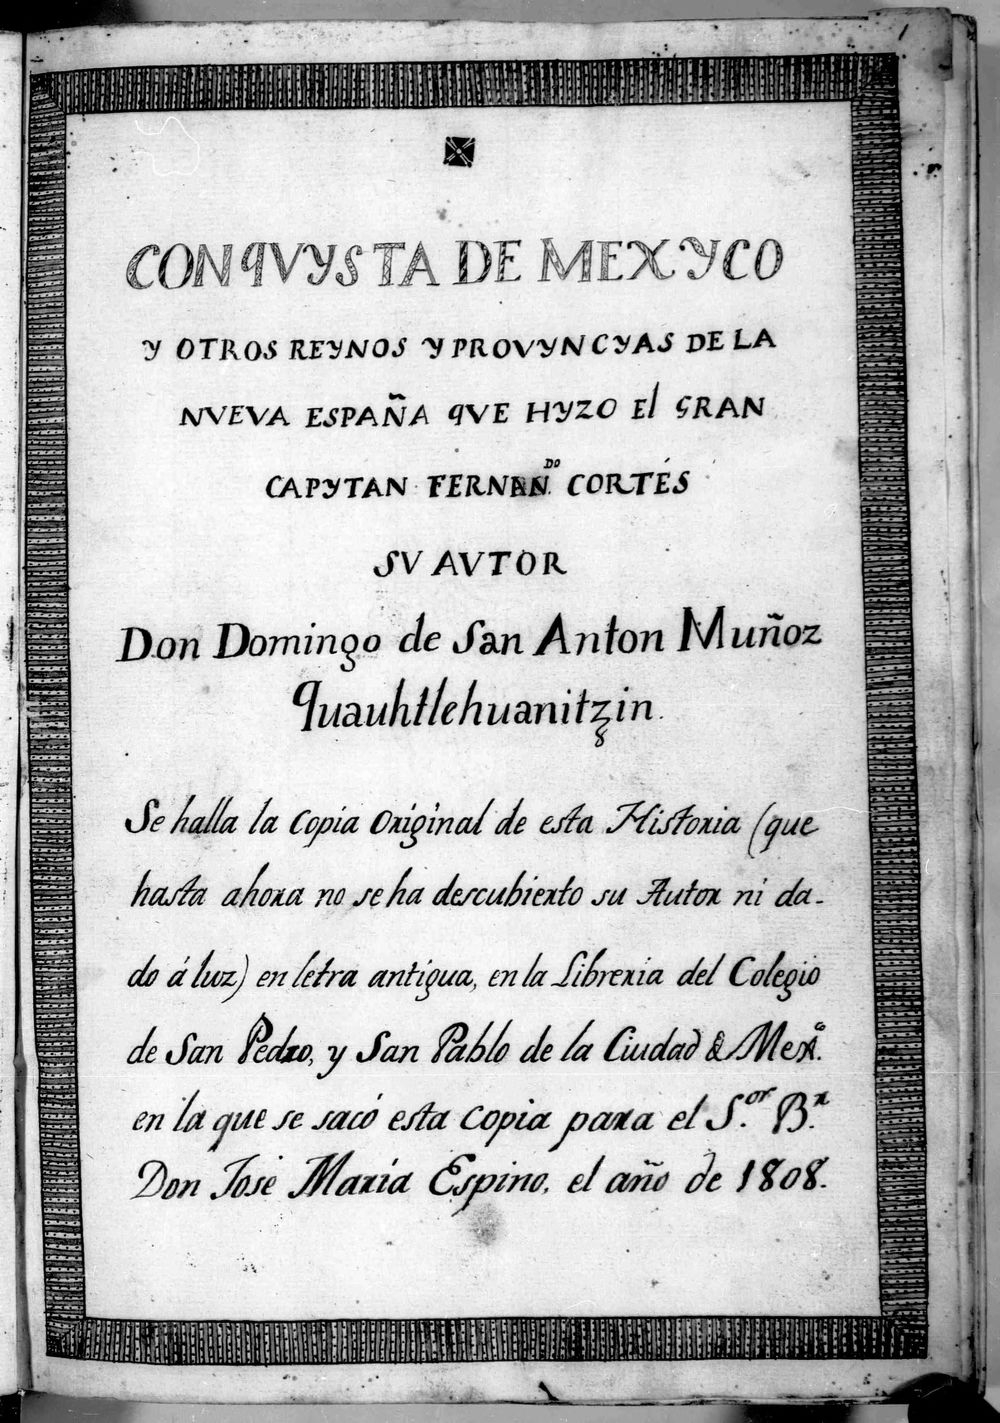 1
CONQVYSTA DE MEXYCO
Y OTROS REYNOS Y PROVYNCYAS DE LA
NVEVA ESPAÑA QVE HYZO El GRAN
CAPYTAN FERNANDO CORTÉS
SV AVTOR
Don Domingo de San Anton Muñoz
Quauhtlehuanitzin.
Se halla la Copia Original de esta Historia (que
hasta ahora no se ha descubierto su Autor ni da-
do á luz) en letra antigua, en la Libreria del Colegio
de San Pedro, y San Pablo de la Ciudad de Mexo.
en la que se sacó esta Copia para el Sor. Br.
Don José María Espino, el año de 1808.